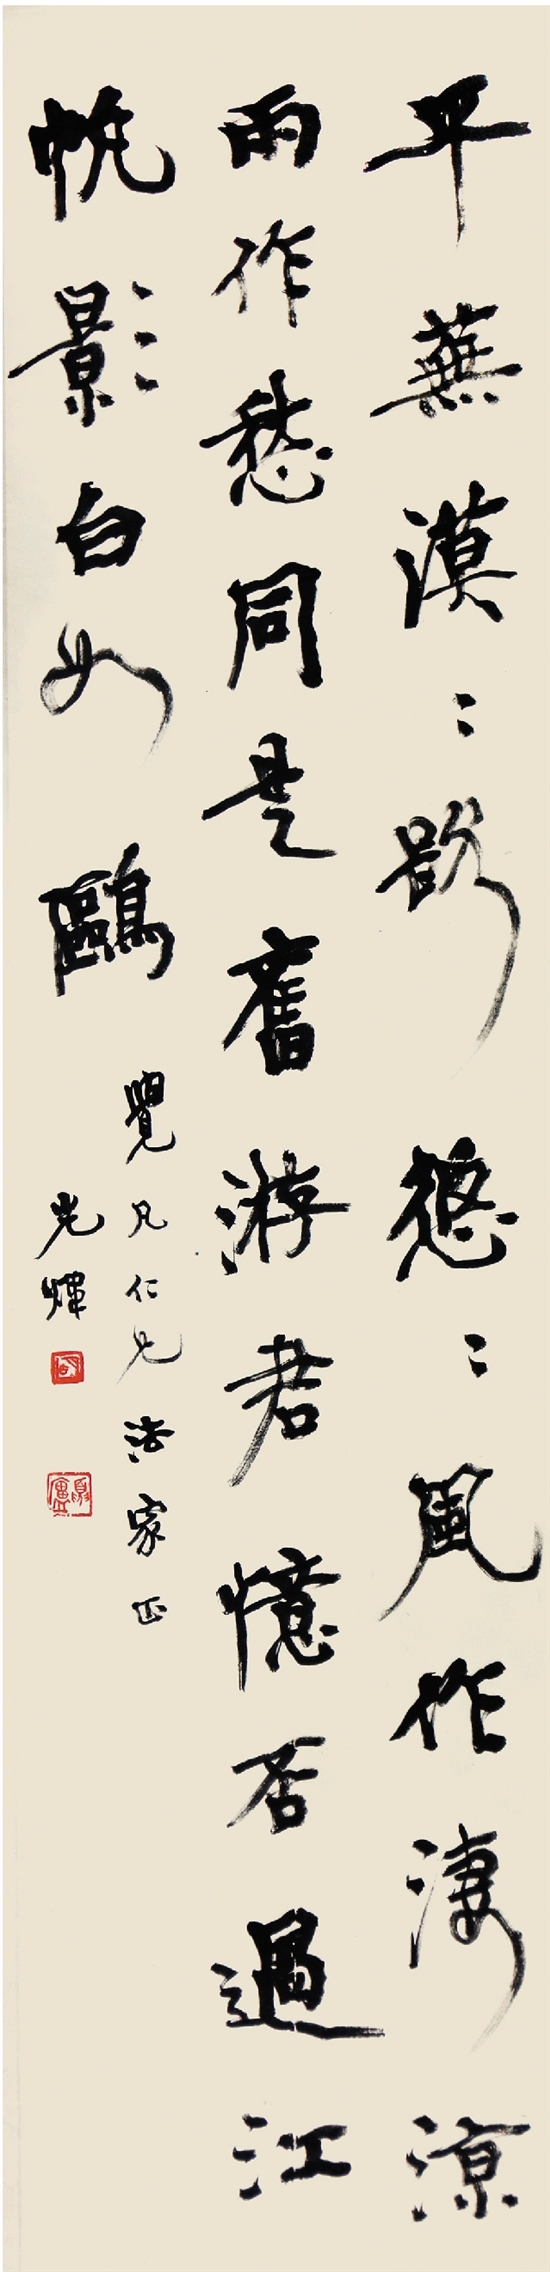 平蕪漠〻路悠〻風作淒涼
雨作愁同是舊游君憶否過江
帆影白如鷗
覺凡仁兄法家正
光煒
夏廬